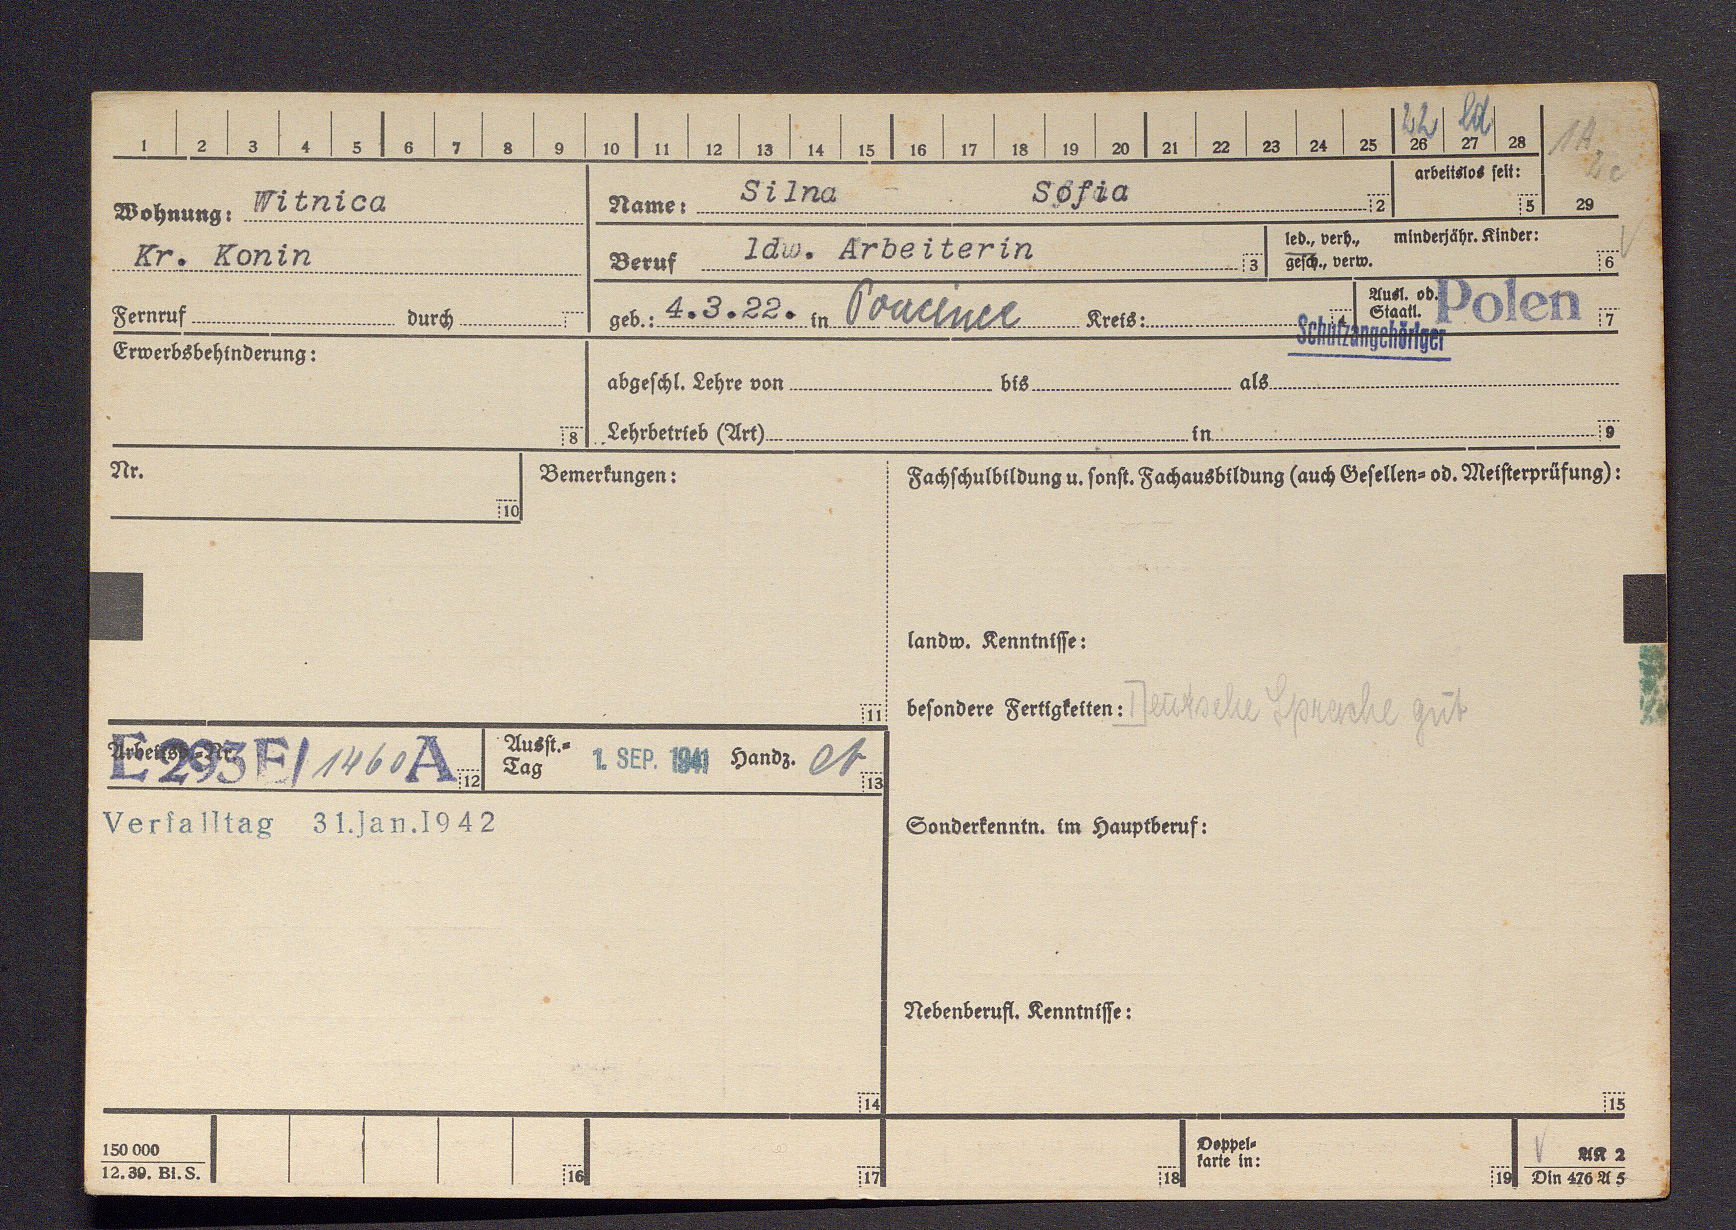 1 2 3 4 5 6 7 8 9 10 11 12 13 14 15 16 17 18 19 20 21 22 23 24 25 26 27 28
22 ld
1A
2c
Wohnung: Witnica
Kr. Konin
Name: Silna Sofia 2
arbeitslos seit: 5
29
Beruf ldw. Arbeiterin 3
led., verh., minderjähr. Kinder:
gesch., verw. 6
Fernruf durch
geb.: 4.3.22. in Kreis: 4
Ausl. od. Staatl. Polen 7
Schutzangehöriger
Erwerbsbehinderung:
8
abgeschl. Lehre von bis als
Lehrbetrieb (Art) in 9
Nr.
10
Bemerkungen:
11
Fachschulbildung u. sonst. Fachausbildung (auch Gesellen= od. Meisterprüfung):
landw. Kenntnisse:
besondere Fertigkeiten: Deutsche Sprache gut
Arbeitsb.=Nr. E 293E/1460A 12
Ausst.=
Tag 1. SEP. 1941 Handz. 13
Verfalltag 31.Jan.1942
Sonderkenntn. im Hauptberuf:
Nebenberufl. Kenntnisse:
14
15
150 000
12. 39. Bl. S.
16
17
18
Doppel=
karte in:
19
AK 2
Din 476 A 5